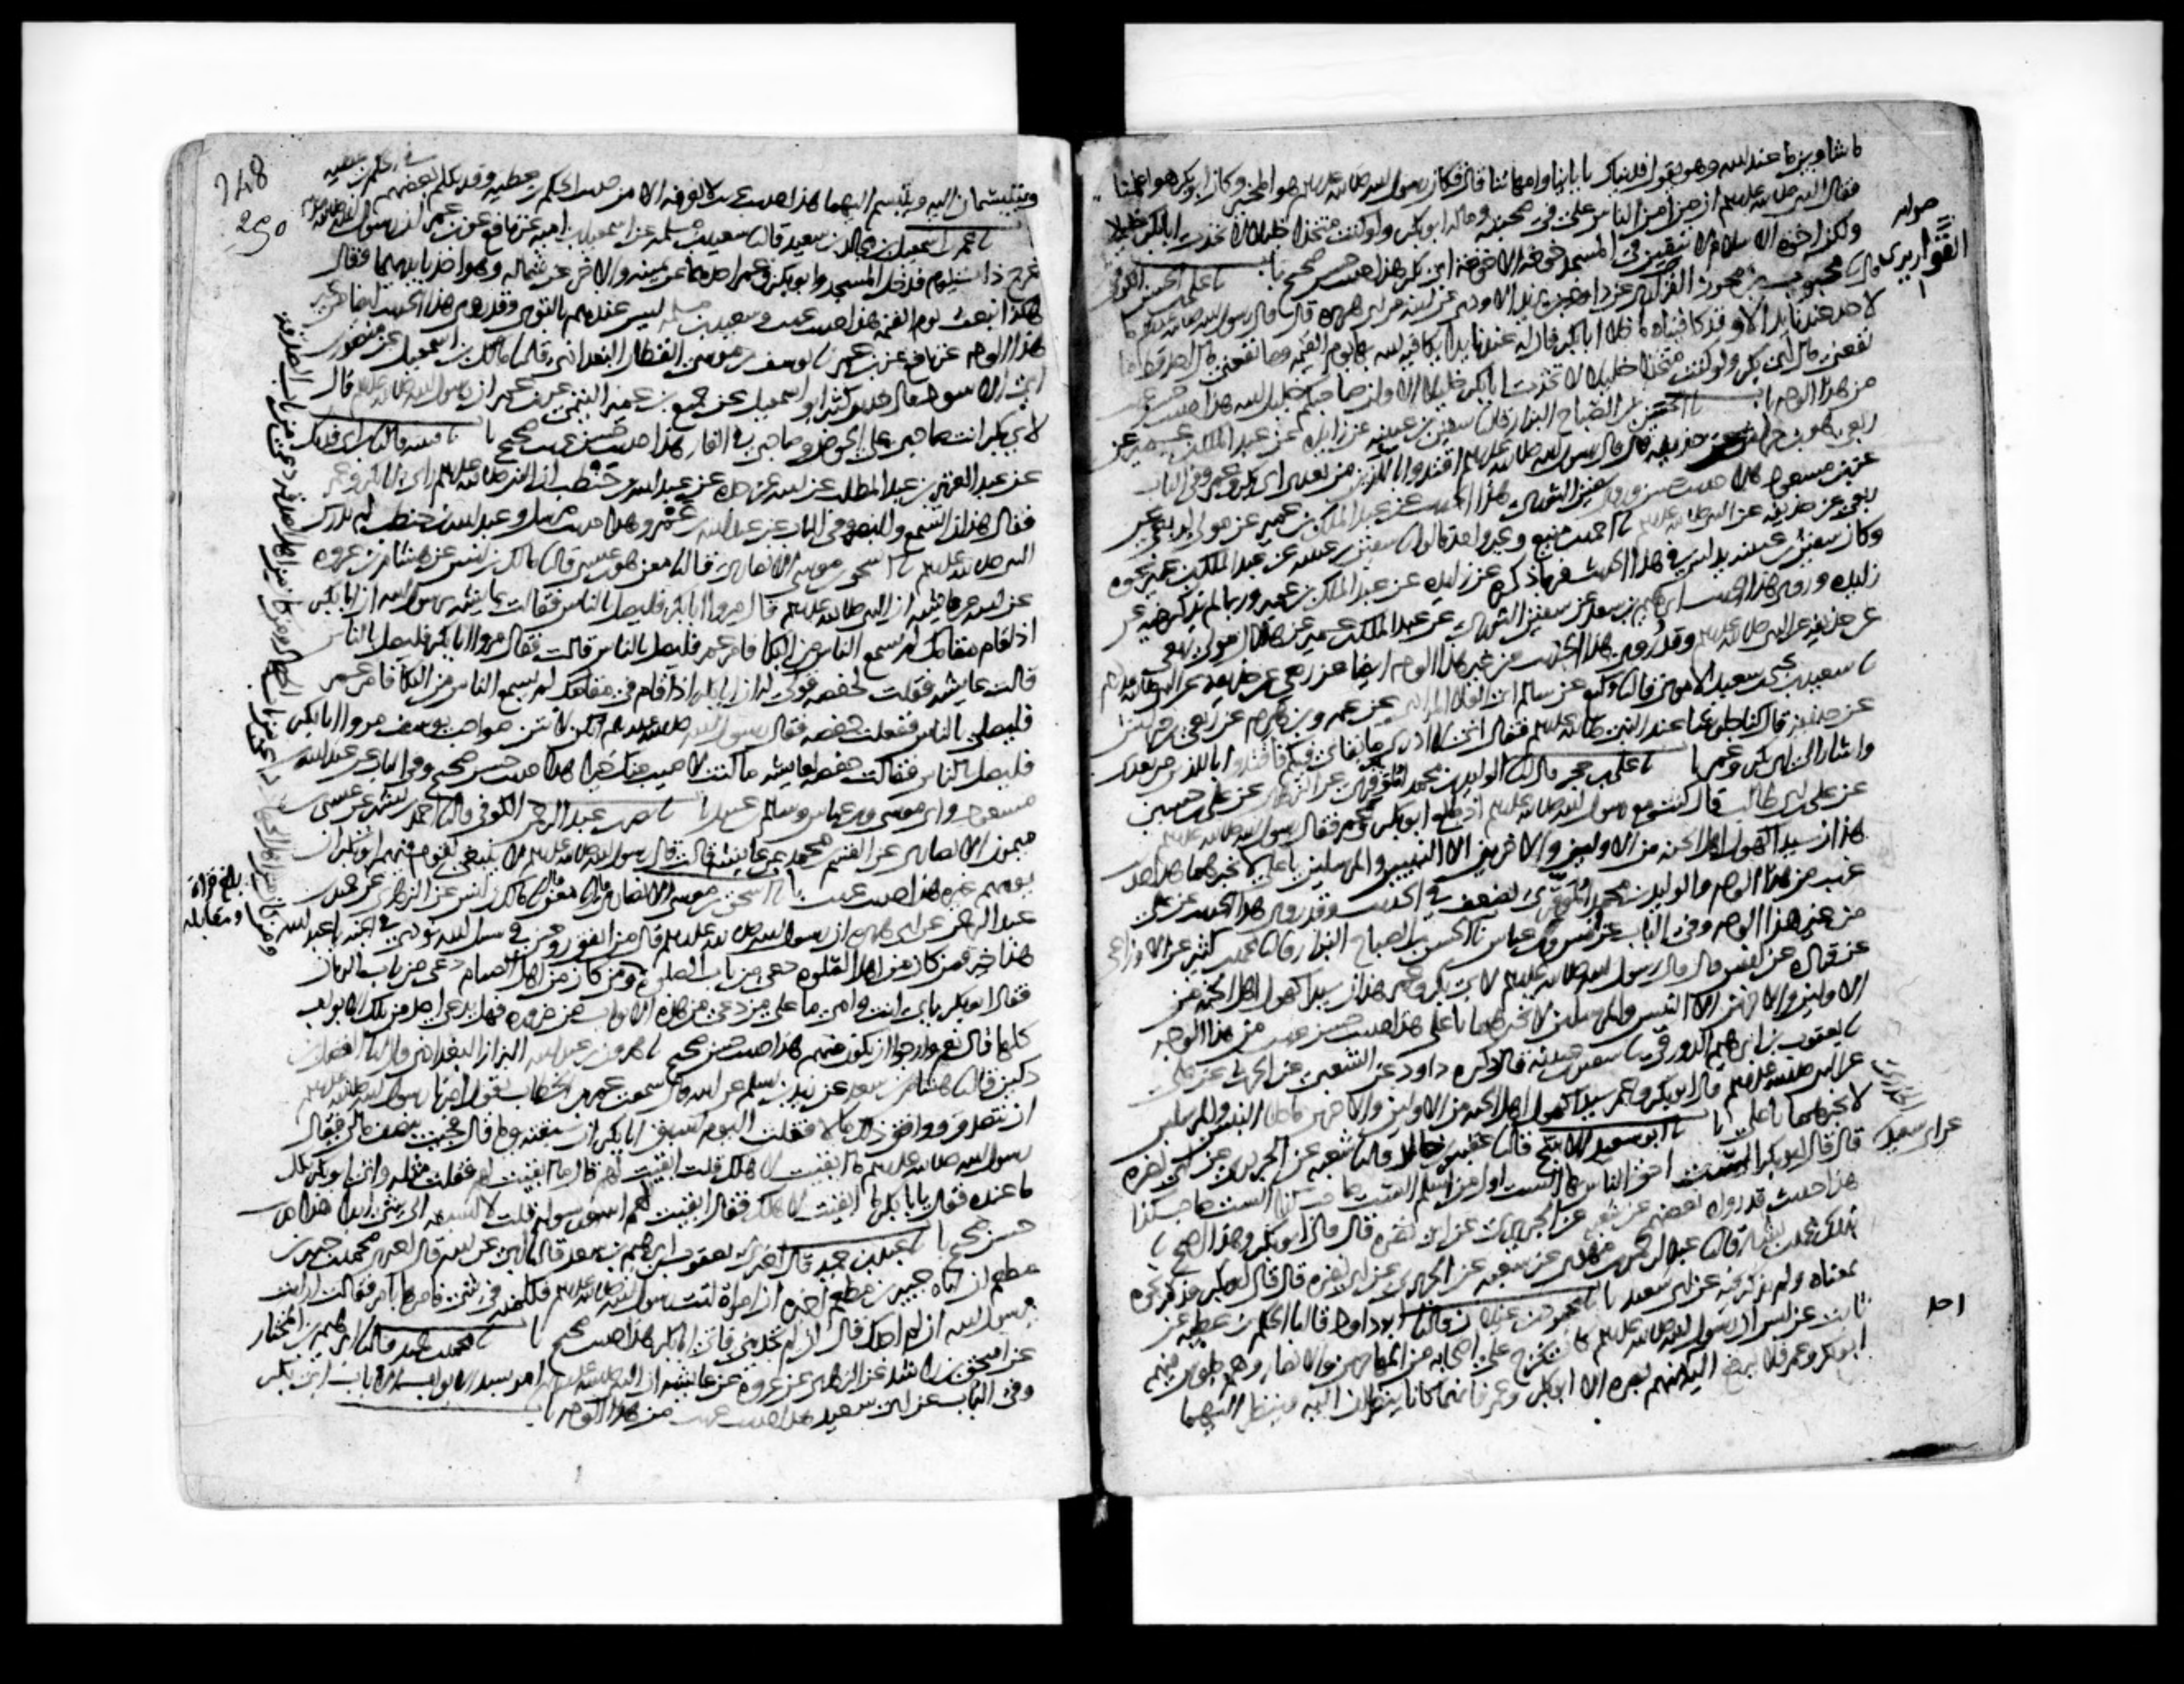 ما شا وبين ما عند الله وهو يقول فديناك بابائنا وامهاتنا قال فكان رسول الله صلى الله عليه وسلم هو المخير وكان ابو بكر هو اعلمنا
فقال النبي صلى الله عليه وسلم ان من امن الناس علي في صحبته وماله ابو بكر ولو كنت متخذا خليلا لاتخذت ابا بكر خليلا
ولكن اخوة الاسلام لا تبقين في المسجد خوخة الا خوخة ابي بكر هذا حديث حسن صحيح نا علي بن الحسن الكوفي
نا محبوب بن محرز القواريري عن داود بن يزيد الاودي عن ابيه عن ابي هريرة قال قال رسول الله صلى الله عليه وسلم ما
لاحد عندنا يد الا وقد كافيناه ما خلا ابا بكر فان له عندنا يدا يكافيه الله بها يوم القيمة وما نفعني مال احد قط ما
نفعني مال ابي بكر ولو كنت متخذا خليلا لاتخذت ابا بكر خليلا الا وان صاحبكم خليل الله هذا حديث حسن غريب
من هذا الوجه نا الحسن بن الصباح البزار قال نا سفين بن عيينة عن زائدة عن عبد الملك بن عمير عن
ربعي عن حذيفة قال قال رسول الله صلى الله عليه وسلم اقتدوا باللذين من بعدي ابي بكر وعمر وفي الباب
عن ابن مسعود هذا حديث حسن وروى سفين الثوري هذا الحديث عن عبد الملك بن عمير عن مولى لربعي عن
ربعي عن حذيفة عن النبي صلى الله عليه وسلم نا احمد بن منيع وغير واحد قالوا نا سفين بن عيينة عن عبد الملك بن عمير نحوه
وكان سفين بن عيينة يدلس في هذا الحديث فربما ذكره عن زائدة عن عبد الملك بن عمير وربما لم يذكر فيه عن
زائدة وروى هذا الحديث ابرهيم بن سعد عن سفين الثوري عن عبد الملك بن عمير عن هلال مولى ربعي عن
عن حذيفة عن النبي صلى الله عليه وسلم وقد روي هذا الحديث من غير هذا الوجه ايضا عن ربعي عن حذيفة عن النبي صلى الله عليه وسلم
نا سعيد بن يحيى بن سعيد الاموي قال نا وكيع عن سالم ابي العلا المرادي عن عمرو بن هرم عن ربعي بن حراش
عن حذيفة قال كنا جلوسا عند النبي صلى الله عليه وسلم فقال اني لا ادري ما بقائي فيكم فاقتدوا باللذين من بعدي
واشار الى ابي بكر وعمر نا علي بن حجر قال نا الوليد بن محمد الموقري عن الزهري عن علي بن حسين
عن علي بن ابي طالب قال كنت مع رسول الله صلى الله عليه وسلم اذ طلع ابو بكر وعمر فقال رسول الله صلى الله عليه وسلم
هذان سيدا كهول اهل الجنة من الاولين والاخرين الا النبيين والمرسلين يا علي لا تخبرهما هذا حديث
غريب من هذا الوجه والوليد بن محمد الموقري يضعف في الحديث وقد روي هذا الحديث عن علي
من غير هذا الوجه وفي الباب عن انس وابن عباس نا الحسن بن الصباح البزار قال نا محمد بن كثير عن الاوزاعي
عن قتادة عن انس قال قال رسول الله صلى الله عليه وسلم لابي بكر وعمر هذان سيدا كهول اهل الجنة من
الاولين والاخرين الا النبيين والمرسلين لا تخبرهما يا علي هذا حديث حسن غريب من هذا الوجه
نا يعقوب بن ابرهيم الدورقي نا سفين بن عيينة قال ذكره داود عن الشعبي عن الحرث عن علي
عن النبي صلى الله عليه وسلم قال ابو بكر وعمر سيدا كهول اهل الجنة من الاولين والاخرين ما خلا النبيين والمرسلين
لا تخبرهما يا علي نا ابو سعيد الاشج قال نا عقبة بن خالد قال نا شعبة عن الجريري عن ابي نضرة
عن ابي سعيد الخدري
قال قال ابو بكر الست احق الناس بها الست اول من اسلم الست صاحب كذا الست صاحب كذا
هذا حديث قد رواه بعضهم عن شعبة عن الجريري عن ابي نضرة قال قال ابو بكر وهذا اصح نا
بذلك محمد بن بشار قال نا عبد الرحمن بن مهدي عن شعبة عن الجريري عن ابي نضرة قال قال ابو بكر فذكر نحوه
بمعناه ولم يذكر فيه عن ابي سعيد نا محمود بن غيلان قال نا ابو داود قال نا الحكم بن عطية عن
ثابت عن انس ان رسول الله صلى الله عليه وسلم كان يخرج على اصحابه من المهاجرين والانصار وهم جلوس فيهم
احد
ابو بكر وعمر فلا يرفع اليه منهم بصره الا ابو بكر وعمر فانهما كانا ينظران اليه وينظر اليهما
صوابه
القواريري
248
250
ويتبسمان اليه ويتبسم اليهما هذا حديث غريب لا نعرفه الا من حديث الحكم بن عطية وقد تكلم بعضهم
في الحكم بن عطية
نا عمر بن اسمعيل بن مجالد بن سعيد قال نا سعيد بن مسلمة عن اسمعيل بن امية عن نافع عن ابن عمر ان رسول الله صلى الله عليه وسلم
خرج ذات يوم فدخل المسجد وابو بكر وعمر احدهما عن يمينه والاخر عن شماله وهو اخذ بايديهما فقال
هكذا نبعث يوم القيمة هذا حديث غريب وسعيد بن مسلمة ليس عندهم بالقوي وقد روي هذا الحديث ايضا من غير
هذا الوجه عن نافع عن ابن عمر نا يوسف بن موسى القطان البغدادي قال نا مالك بن اسمعيل عن منصور بن
ابي الاسود قال حدثني كثير ابو اسمعيل عن جميع بن عمير التيمي عن ابن عمر ان رسول الله صلى الله عليه وسلم قال
لابي بكر انت صاحبي على الحوض وصاحبي في الغار هذا حديث حسن غريب صحيح نا قتيبة قال نا ابن ابي فديك
عن عبد العزيز بن عبد المطلب عن ابيه عن جده عن عبد الله بن حنطب ان النبي صلى الله عليه وسلم راى ابا بكر وعمر
فقال هذان السمع والبصر وفي الباب عن عبد الله بن عمرو وهذا حديث مرسل وعبد الله بن حنطب لم يدرك
النبي صلى الله عليه وسلم نا اسحق بن موسى الانصاري قال نا معن هو ابن عيسى قال نا مالك بن انس عن هشام بن عروة
عن ابيه عن عائشة ان النبي صلى الله عليه وسلم قال مروا ابا بكر فليصل بالناس فقالت عائشة يا رسول الله ان ابا بكر
اذا قام مقامك لم يسمع الناس من البكا فامر عمر فليصل بالناس قالت فقال مروا ابا بكر فليصل بالناس
قالت عائشة فقلت لحفصة قولي له ان ابا بكر اذا قام في مقامك لم يسمع الناس من البكا فامر عمر
فليصلي بالناس ففعلت حفصة فقال رسول الله صلى الله عليه وسلم انكن لانتن صواحب يوسف مروا ابا بكر
فليصل بالناس فقالت حفصة لعائشة ما كنت لاصيب منك خيرا هذا حديث حسن صحيح وفي الباب عن عبد الله بن
مسعود وابي موسى وابن عباس وسالم بن عبيد نا نصر بن عبد الرحمن الكوفي قال نا احمد بن بشير عن عيسى بن
ميمون الانصاري عن القسم بن محمد عن عائشة قالت قال رسول الله صلى الله عليه وسلم لا ينبغي لقوم فيهم ابو بكر ان
يومهم غيره هذا حديث غريب نا اسحق بن موسى الانصاري قال نا معن قال نا مالك بن انس عن الزهري عن حميد بن
عبد الرحمن عن ابي هريرة ان رسول الله صلى الله عليه وسلم قال من انفق زوجين في سبيل الله نودي في الجنة يا عبد الله
هذا خير فمن كان من اهل الصلوة دعي من باب الصلوة ومن كان من اهل الصيام دعي من باب الريان
فقال ابو بكر بابي انت وامي ما على من دعي من هذه الابواب من ضرورة فهل يدعى احد من تلك الابواب
كلها قال نعم وارجو ان تكون منهم هذا حديث حسن صحيح نا هرون بن عبد الله البزاز البغدادي قال نا الفضل بن
دكين قال نا هشام بن سعد عن زيد بن اسلم عن ابيه قال سمعت عمر بن الخطاب يقول امرنا رسول الله صلى الله عليه وسلم
ان نتصدق ووافق ذلك مالا فقلت اليوم اسبق ابا بكر ان سبقته يوما قال فجئت بنصف مالي فقال
رسول الله صلى الله عليه وسلم ما ابقيت لاهلك قلت مثله واتى ابو بكر بكل
ما عنده فقال يا ابا بكر ما ابقيت لاهلك فقال ابقيت لهم الله ورسوله قلت لا اسبقه الى شي ابدا هذا حديث
حسن صحيح نا عبد بن حميد قال اخبرني يعقوب بن ابرهيم بن سعد قال نا ابي عن ابيه قال اخبرني محمد بن جبير بن
مطعم ان اباه جبير بن مطعم اخبره ان امراة اتت رسول الله صلى الله عليه وسلم فكلمته في شي فامرها بامر فقالت ارايت
يرسول الله ان لم اجدك قال ان لم تجديني فاتي ابا بكر هذا حديث صحيح نا محمد بن حميد قال نا ابرهيم بن المختار
عن اسحق بن راشد عن الزهري عن عروة عن عائشة ان النبي صلى الله عليه وسلم امر بسد الابواب الا باب ابي بكر
وفي الباب عن ابي سعيد هذا حديث غريب من هذا الوجه
بلغ قراة
ومقابلة